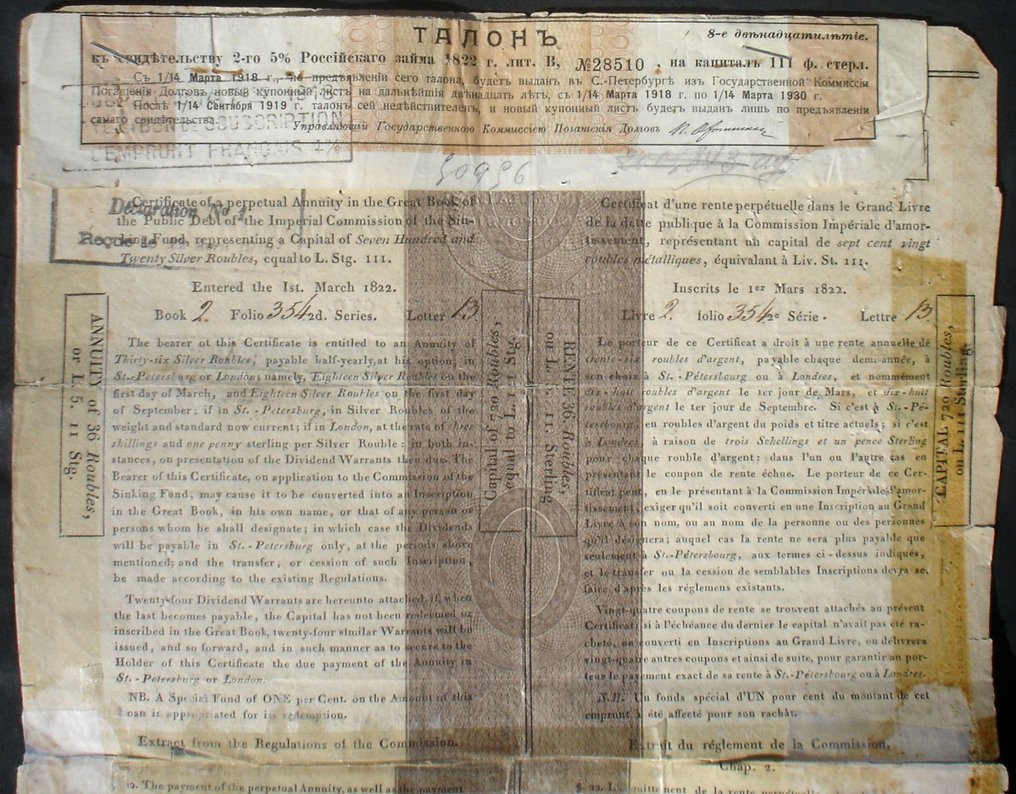 ТАЛОНЪ
8-е двѣнадцатилѣтіе.
къ свидѣтельству 2-го 5% Россійскаго займа 1822 г. лит. В, №28510, на капиталъ 111 ф. стерл.
Съ 1/14 Марта 1918 г. по предъявленіи сего талона, будетъ выданъ въ С.-Петербургѣ изъ Государственной Коммиссіи
Погашенія Долговъ новый купонный листъ на дальнѣйшія двѣнадцать лѣтъ, съ 1/14 Марта 1918 г. по 1/14 Марта 1930 г.
Послѣ 1/14 Сентября 1919 г. талонъ сей недѣйствителенъ, и новый купонный листъ будетъ выданъ лишь по предъявленіи
самаго свидѣтельства.
Управляющій Государственною Коммиссіею Погашенія Долговъ
SOUSCRIPTION
L'EMPRUNT FRANÇAIS 4%
50956
Déclaration No 1
Reçue le
Certificate of a perpetual Annuity in the Great Book of
the Public Debt of the Imperial Commission of the Sin-
king Fund, representing a Capital of Seven Hundred and
Twenty Silver Roubles, equal to L. Stg. 111.
Entered the 1st. March 1822.
Book 2. Folio 354 2d. Series. Letter B.
The bearer of this Certificate is entitled to an Annuity of
Thirty-six Silver Roubles, payable half-yearly, at his option, in
St.-Petersburg or London; namely, Eighteen Silver Roubles on the
first day of March, and Eighteen Silver Roubles on the first day
of September; if in St.-Petersburg, in Silver Roubles of the
weight and standard now current; if in London, at the rate of three
shillings and one penny sterling per Silver Rouble: in both in-
stances, on presentation of the Dividend Warrants then due. The
Bearer of this Certificate, on application to the Commission of the
Sinking Fund, may cause it to be converted into an Inscription
in the Great Book, in his own name, or that of any person or
persons whom he shall designate; in which case the Dividends
will be payable in St.-Petersburg only, at the periods above
mentioned; and the transfer, or cession of such Inscription,
be made according to the existing Regulations.
Twenty-four Dividend Warrants are hereunto attached, if, when
the last becomes payable, the Capital has not been redeemed or
inscribed in the Great Book, twenty-four similar Warrants will be
issued, and so forward, and in such manner as to secure to the
Holder of this Certificate the due payment of the Annuity in
St.-Petersburg or London.
NB. A Special Fund of ONE per Cent. on the Amount of this
Loan is appropriated for its redemption.
Extract from the Regulations of the Commission.
12. The payment of the perpetual Annuity, as well as the payment
ANNUITY of 36 Roubles,
or L. 5. 11 Stg.
Capital of 720 Roubles,
equal to L. 111 Stg.
RENTE 36 Roubles,
ou L. 5. 11. Sterling
Certificat d'une rente perpétuelle dans le Grand Livre
de la dette publique à la Commission Impériale d'amor-
tissement, représentant un capital de sept cent vingt
roubles métalliques, équivalant à Liv. St. 111.
Inscrits le 1er Mars 1822.
Livre 2 folio 354 2e Série. Lettre B.
Le porteur de ce Certificat a droit à une rente annuelle de
trente-six roubles d'argent, payable chaque demi-année, à
son choix à St.-Pétersbourg ou à Londres, et nommément
dix-huit roubles d'argent le 1er jour de Mars, et dix-huit
roubles d'argent le 1er jour de Septembre. Si c'est à St.-Pé-
tersbourg, en roubles d'argent du poids et titre actuels; si c'est
à Londres, à raison de trois Schellings et un pence Sterling
pour chaque rouble d'argent: dans l'un ou l'autre cas en
présentant le coupon de rente échue. Le porteur de ce Cer-
tificat peut, en le présentant à la Commission Impériale d'amor-
tissement, exiger qu'il soit converti en une Inscription au Grand
Livre à son nom, ou au nom de la personne ou des personnes
qu'il désignera; auquel cas la rente ne sera plus payable que
seulement à St.-Pétersbourg, aux termes ci-dessus indiqués,
et le transfer ou la cession de semblables Inscriptions devra se
faire d'après les réglemens existans.
Vingt-quatre coupons de rente se trouvent attachés au présent
Certificat; si à l'échéance du dernier le capital n'avait pas été ra-
cheté, ou converti en Inscriptions au Grand Livre, on délivrera
vingt-quatre autres coupons et ainsi de suite, pour garantir au por-
teur le payement exact de sa rente à St.-Pétersbourg ou à Londres.
N.B. Un fonds spécial d'UN pour cent du montant de cet
emprunt a été affecté pour son rachât.
Extrait du réglement de la Commission.
Chap. 2.
de la rente perpétuelle
CAPITAL 720 Roubles,
ou L. 111 Sterling.